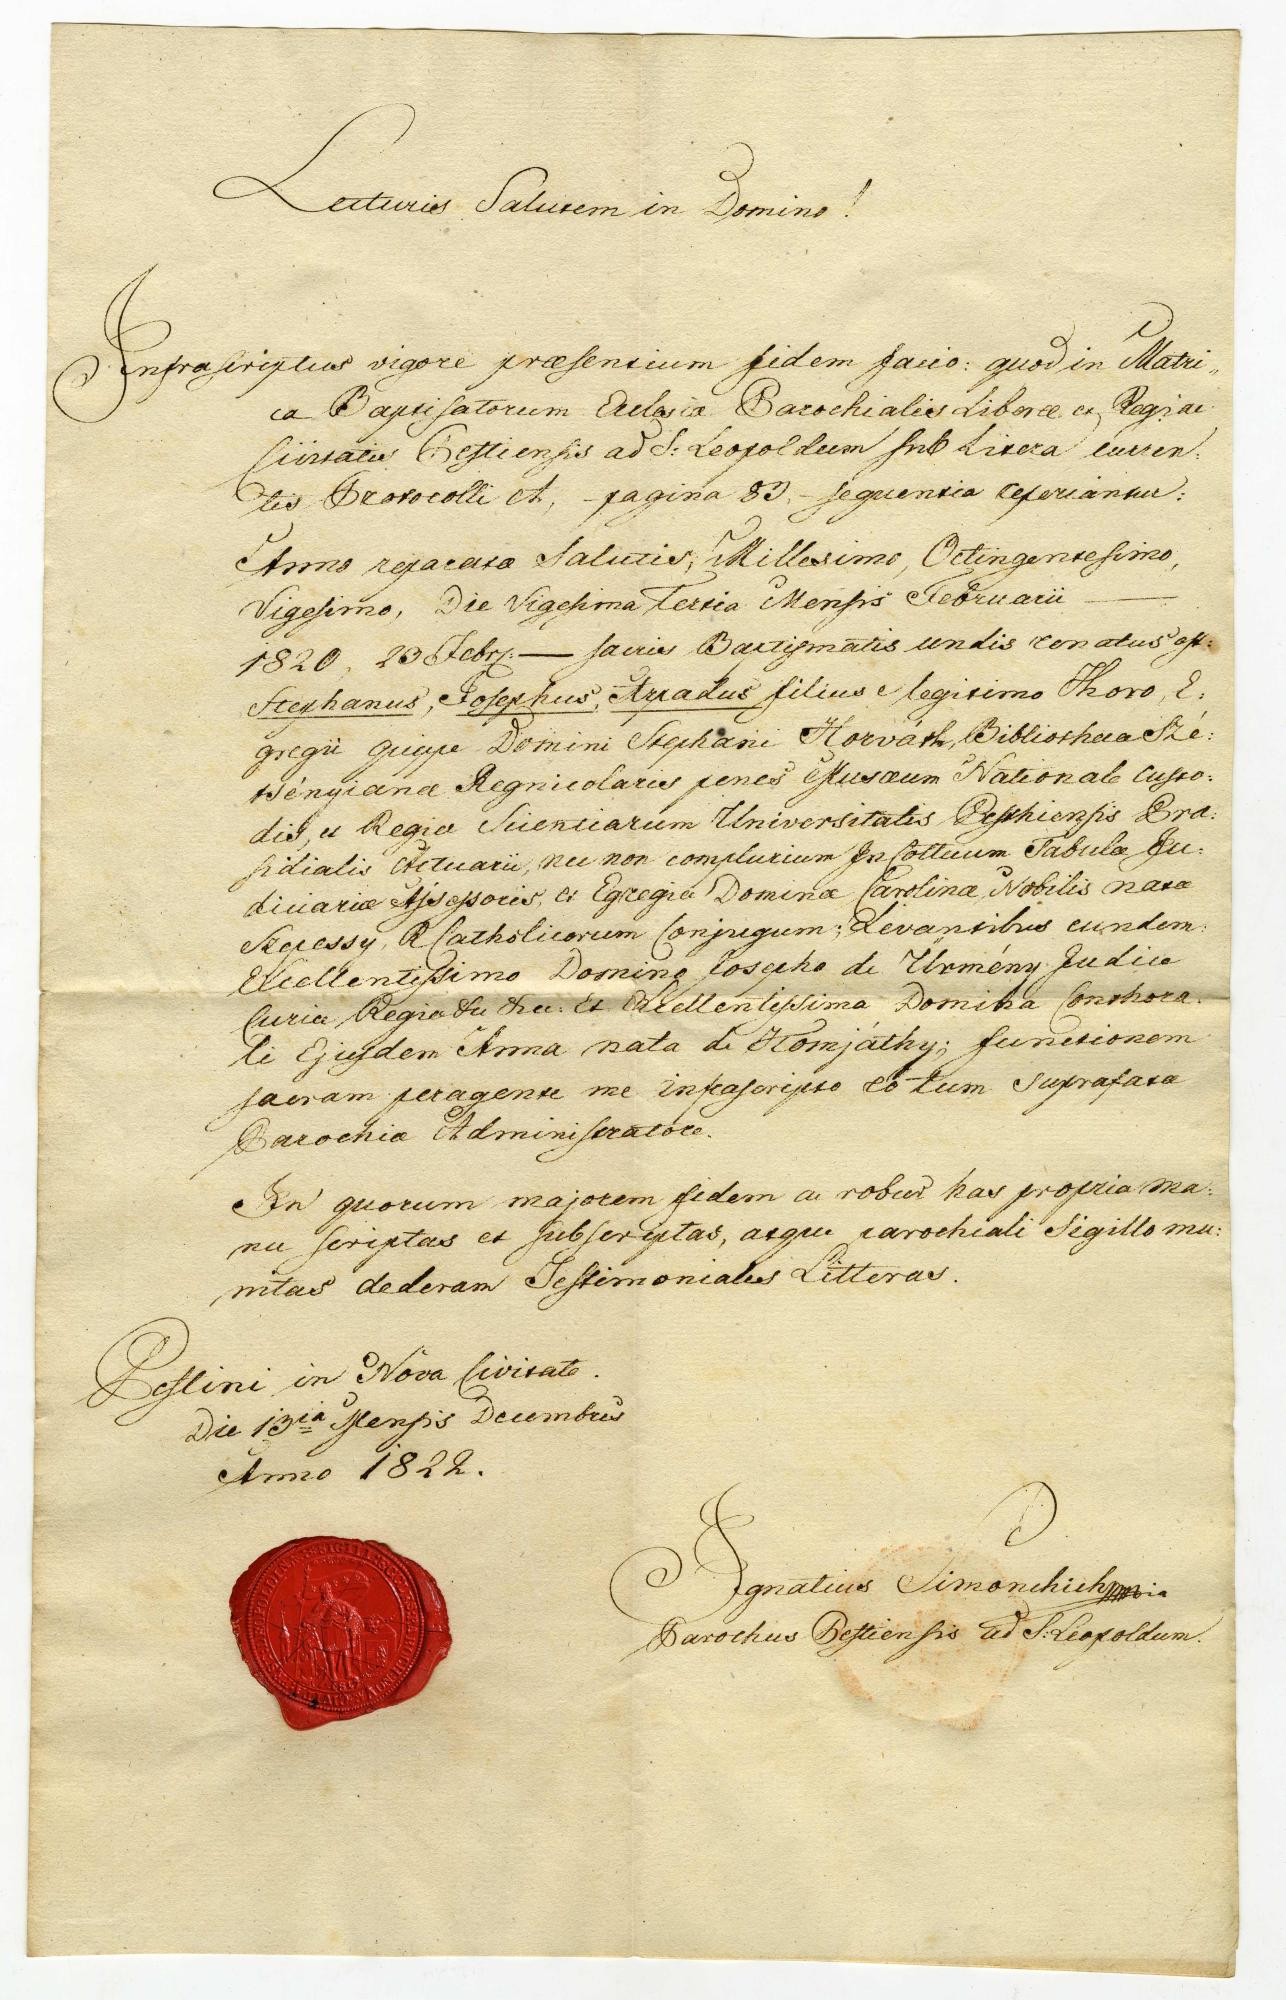 Lecturis Salutem in Domino!
Infrascriptus vigore præsentium fidem facio: quod in Matri„
ca Baptisatorum Eclesiæ Parochialis Liberæ et Regiæ
Civitatis Pestiensis ad S: Leopoldum sub Litera curren:
tis Protocolli A, - pagina 83, - sequentia reperiantur:
Anno reparatæ Salutis, Millesimo, Octingentesimo,
Vigesimo, Die Vigesima Tertia Mensis Februarii —
1820, 23 Febr. — sacris Baptismatis undis renatus est:
Stephanus, Josephus, Arpadus filius e legitimo Thoro, E:
gregii quippe Domini Stephani Horváth, Bibliothecæ Szé:
tsényianæ Regnicolaris penes Musæum Nationale Custo:
dis, et Regiæ Scientiarum Universitatis Pesthiensis Præ:
sidialis Actuarii, nec non complurium InCottuum Tabulæ Ju:
diciariæ Assessoris, et Egregiæ Dominæ Carolinæ Nobilis natæ
Szepessy, R Catholicorum Conjugum; Levantibus eundem:
Excellentissimo Domino Josepho de Ürmény Judice
Curiæ Regiæ &c &c: Et Excellentissima Domina Conthora:
li Ejusdem Anna nata de Komjáthy; functionem
sacram peragente me infrascripto eo tum suprafatæ
Parochiæ Administratore.
In quorum majorem fidem ac robur has propria ma:
nu scriptas et subscriptas, atque parochiali Sigillo mu:
nitas dederam Testimoniales Litteras.
Pestini in Nova Civitate.
Die 13tia Mensis Decembris
Anno 1822.
Ignatius Simonchich mpia
Parochus Pestiensis ad S: Leopoldum.